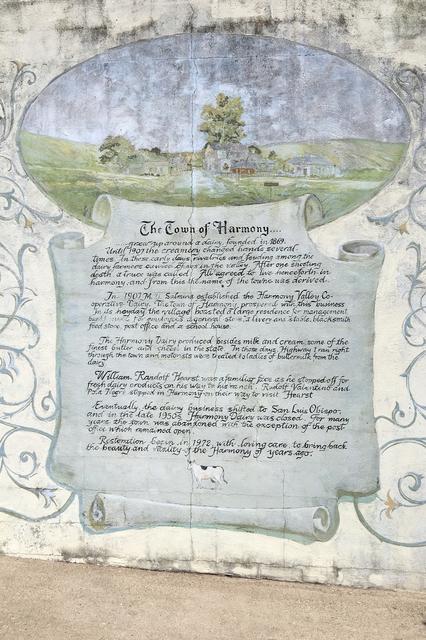 The Town of Harmony....
grew up around a dairy, founded in 1869.
Until 1907 the creamery changed hands several
times. In those early days rivalries and feuding among the
dairy farmers caused chaos in the valley. After one shooting
death a truce was called. All agreed to live henceforth in
harmony, and from this the name of the town was derived.
In 1907 M. G. Salmina established the Harmony Valley Co-
operative Dairy. The Town of Harmony prospered with this business
In its heyday the village boasted a large residence for management
bunk house for employees a general store, a livery and stable, blacksmith
feed store, post office and a school house.
The Harmony Dairy produced besides milk and cream, some of the
finest butter and cheese in the state. In those days, Highway 1 ran right
through the town and motorists were treated to ladles of buttermilk from the
dairy
William Randolf Hearst was a familiar face as he stopped off for
fresh dairy products on his way to his ranch. Rudolf Valentino and
Pola Negri stopped in Harmony on their way to visit Hearst
Eventually the dairy business shifted to San Luis Obispo;
and in the late 1950s Harmony Dairy was closed. For many
years the town was abandoned with the exception of the post
office which remained open.
Restoration began in 1972, with loving care, to bring back
the beauty and vitality of the Harmony of years ago.